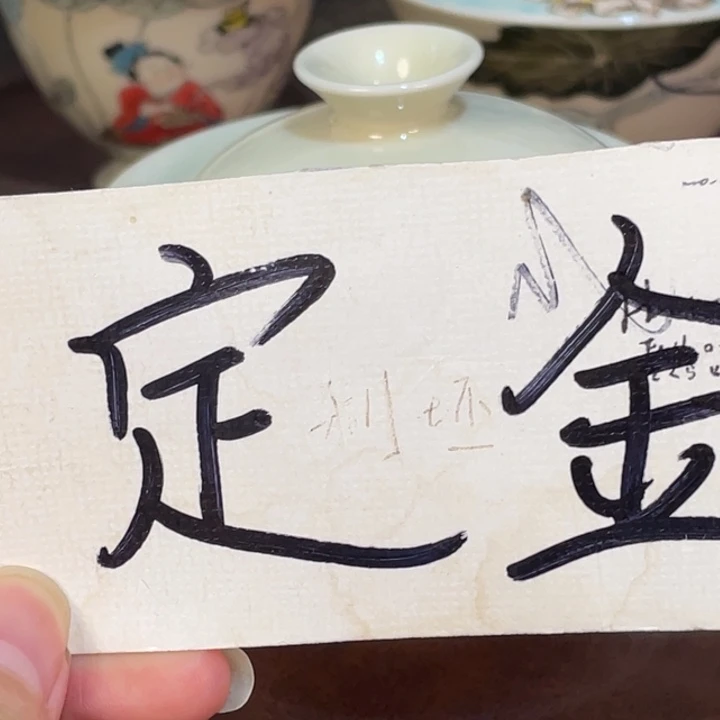 定金
利坯